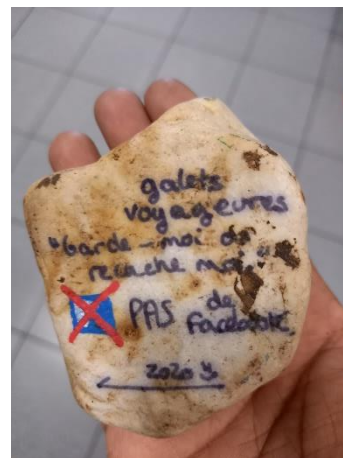 galets
voyageures
"Garde-moi ou
recache moi"
PAS de
Facebook
2020